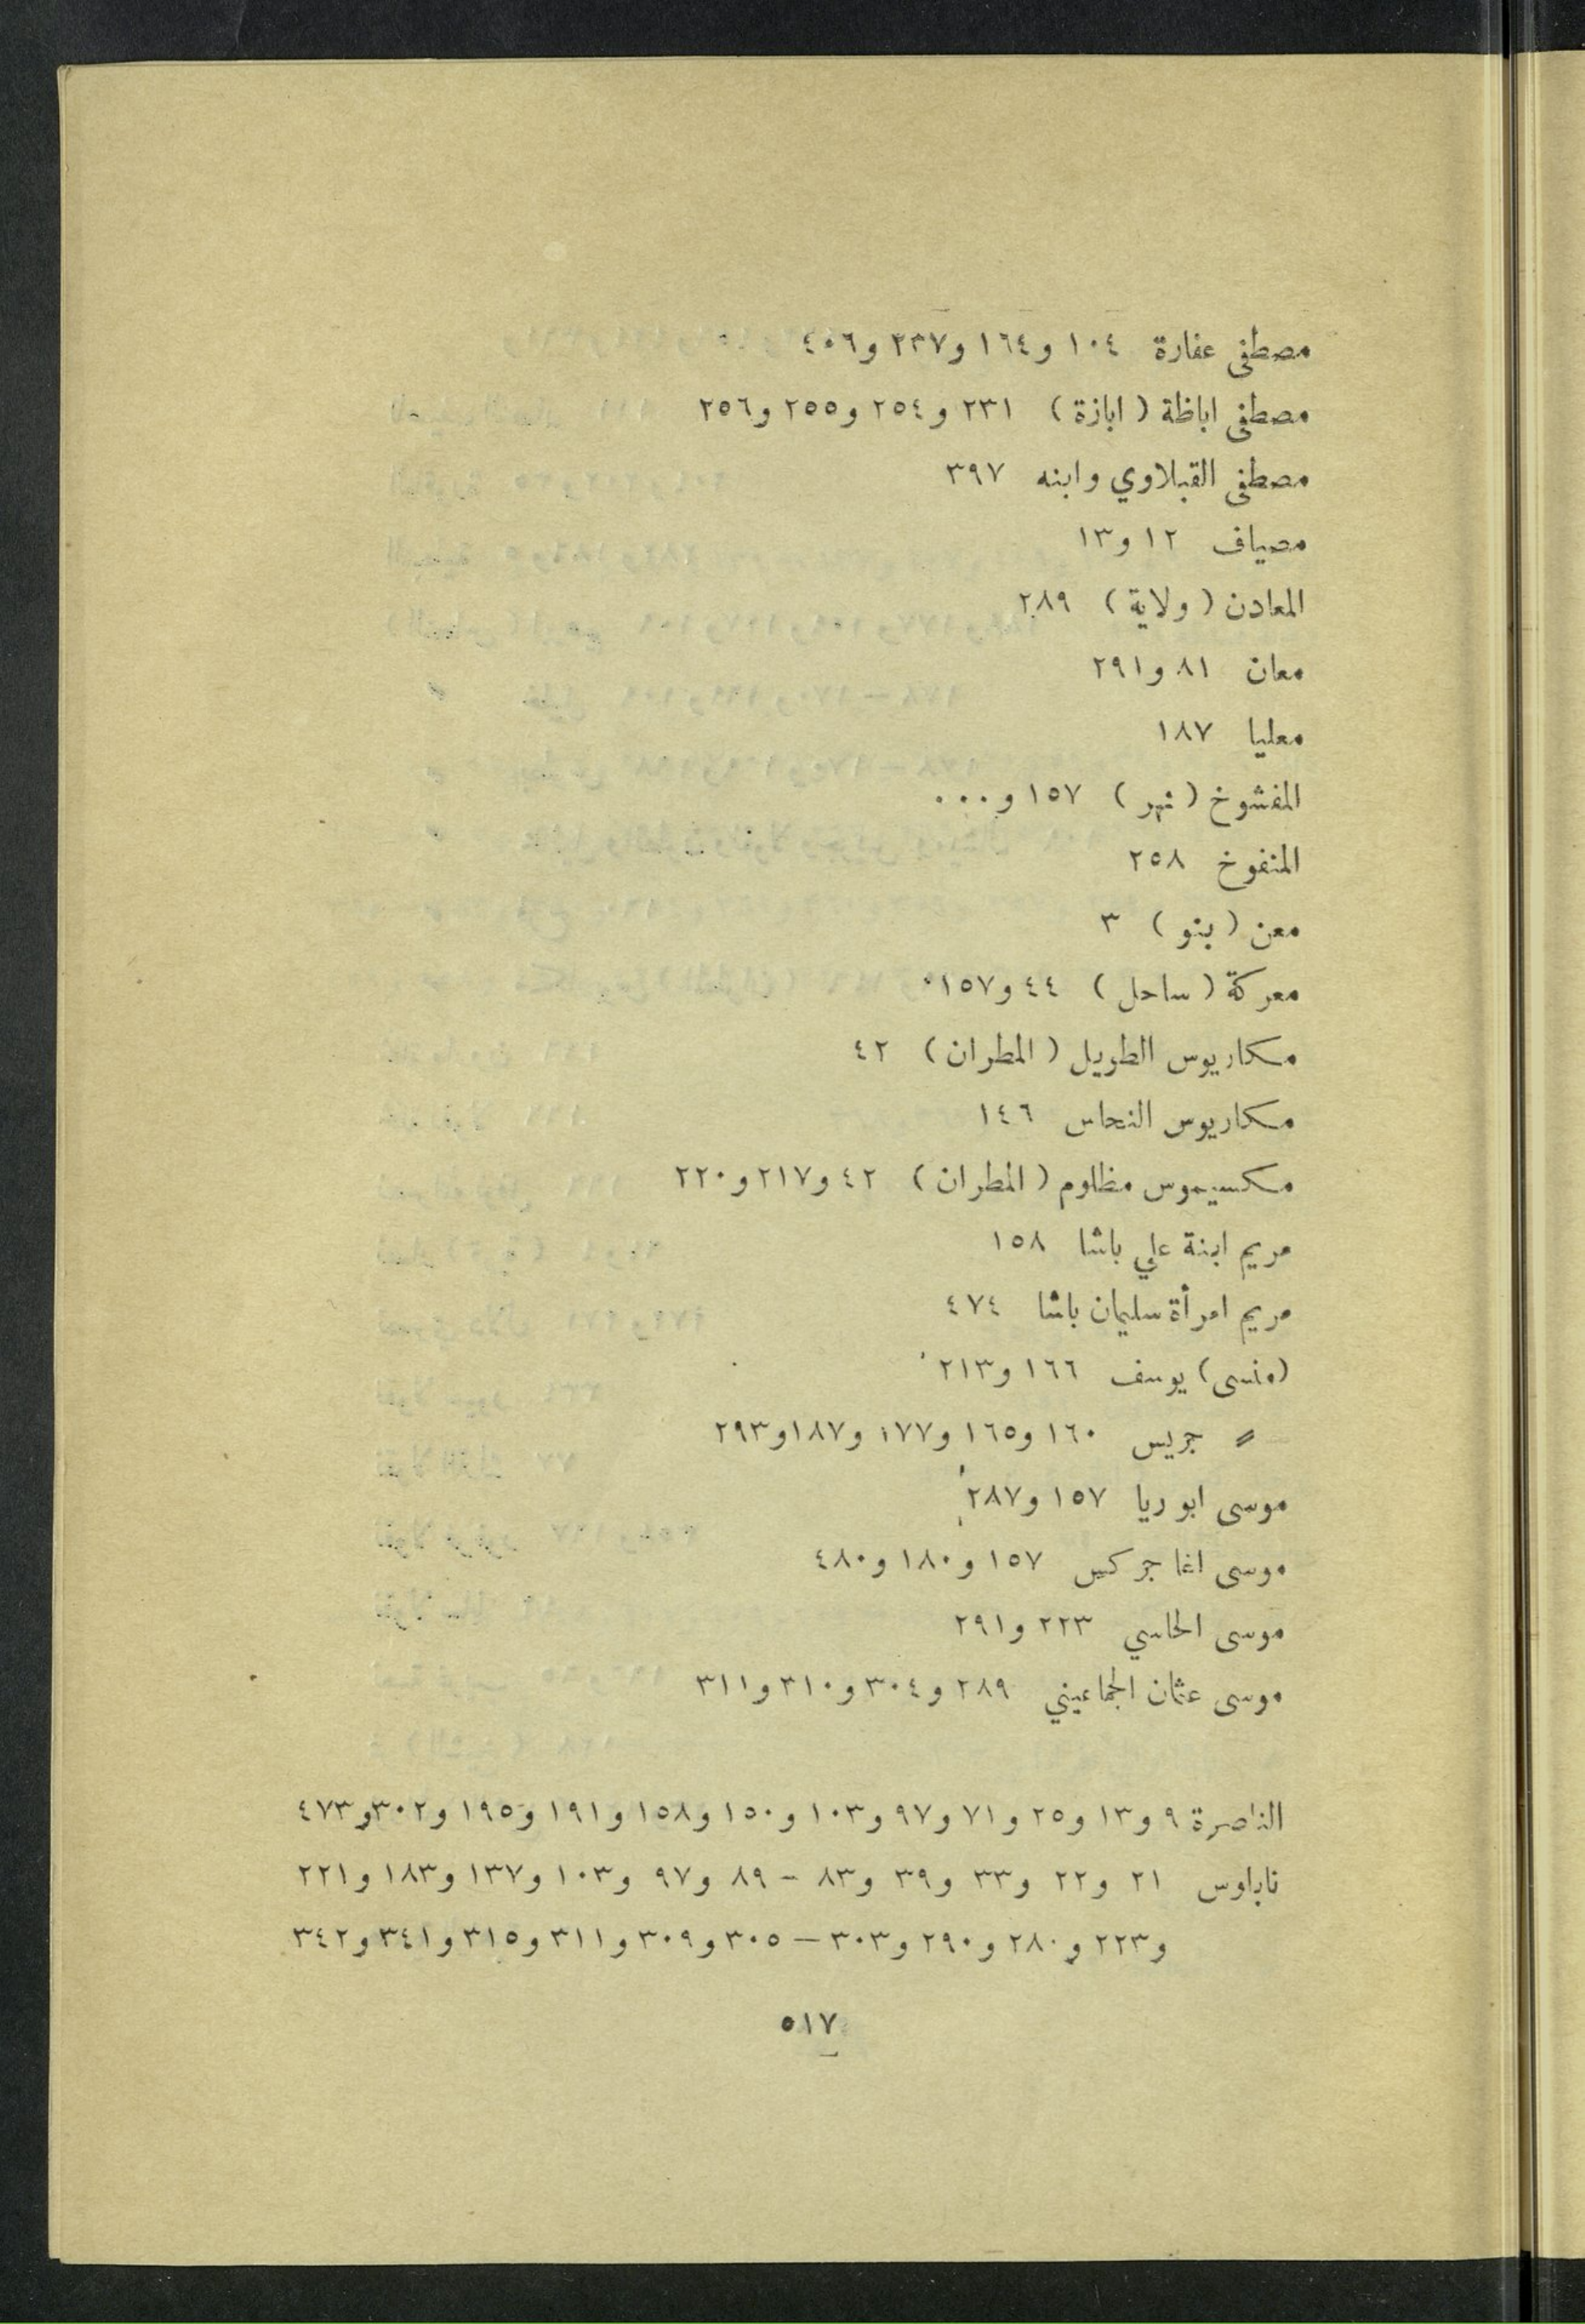 مصطفى عفارة ١٠٤ و١٦٤ و٢٣٧ و٤٠٦
مصطفى اباظة ( ابازة ) ٢٣١ و٢٥٤ و٢٥٥ و٢٥٦
مصطفى القبلاوي وابنه ٣٩٧
مصياف ١٢ و١٣
المعادن ( ولاية ) ٢٨٩
معان ٨١ و٢٩١
معليا ١٨٧
المفشوخ ( نهر ) ١٥٧ و٠٠٠
المنفوخ ٢٥٨
معن ( بنو ) ٣
معركة ( ساحل ) ٤٤ و١٥٧
مكاريوس الطويل ( المطران ) ٤٢
مكاريوس النحاس ١٤٦
مكسيموس مظلوم ( المطران ) ٤٢ و٢١٧ و٢٢٠
مريم ابنة علي باشا ١٥٨
مريم امرأة سليمان باشا ٤٧٤
(منسى) يوسف ١٦٦ و٢١٣
〃 جريس ١٦٠ و١٦٥ و١٧٧ و١٨٧ و٢٩٣
موسى ابو ريا ١٥٧ و٢٨٧
موسى اغا جركس ١٥٧ و١٨٠ و٤٨٠
موسى الحاسي ٢٢٣ و٢٩١
موسى عثمان الجماعيني ٢٨٩ و٣٠٤ و٣١٠ و٣١١
الناصرة ٩ و١٣ و٢٥ و٧١ و٩٧ و١٠٣ و١٥٠ و١٥٨ و١٩١ و١٩٥ و٣٠٢ و٤٧٣
نابلوس ٢١ و٢٢ و٣٣ و٣٩ و٨٣ - ٨٩ و٩٧ و١٠٣ و١٣٧ و١٨٣ و٢٢١
و٢٢٣ و٢٨٠ و٢٩٠ و٣٠٣ — ٣٠٥ و٣٠٩ و٣١١ و٣١٥ و٣٤١ و٣٤٢
٥١٧